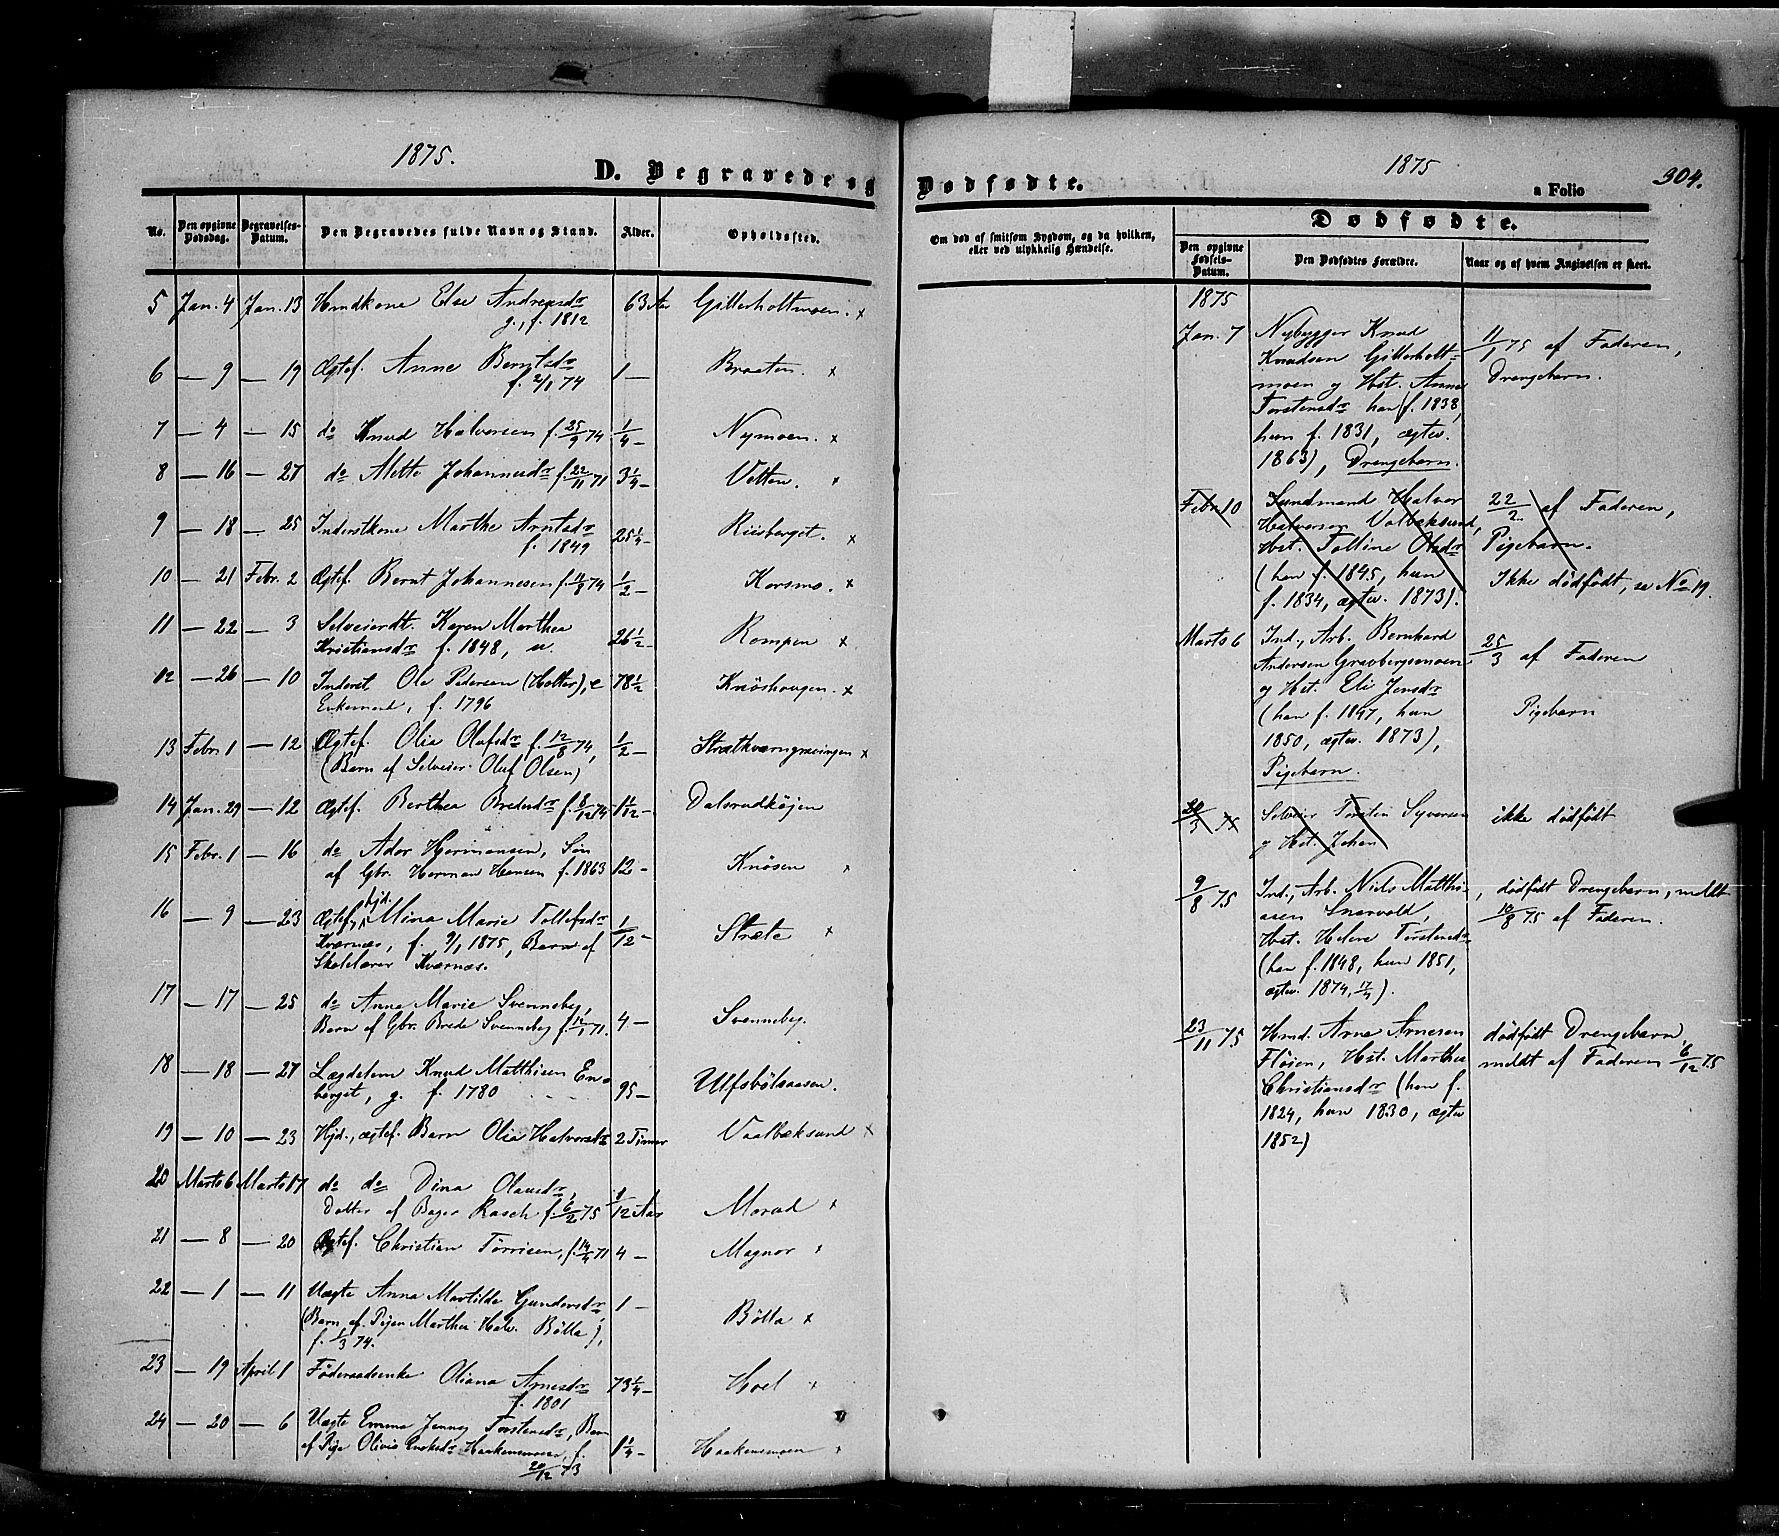 1875.
D. Begravede og
No.
Den opgivne Dødsdag.
Begravelses-Datum.
Den Begravedes fulde Navn og Stand.
Alder.
Opholdssted.
5 Jan. 4 Jan. 13 Hmdkone Else Andreasdr 63 Aar Gitterholtmoen. x
g., f. 1812
6 — 9 — 19 Ægtef. Anne Berntsdr 1 — Braaten. x
f. 2/1 74
7 — 4 — 15 do Knud Halvorsen f. 25/9 74 1/4 — Nymoen. x
8 — 16 — 27 do Mette Johannesdr f. 22/11 71 3 1/4 — Vetten. x
9 — 18 — 25 Inderstkone Marthe Arntsdr 25 1/4 — Riisberget. x
f. 1849
10 — 21 Febr. 2 Ægtef. Bernt Johannesen f. 11/8 74 1/2 — Korsmo. x
11 — 22 — 3 Selveierdt. Karen Marthea
Kristiansdr f. 1848, u. 26 1/2 — Rompen x
12 — 26 — 10 Inderst Ole Pedersen (Holter), e 78 1/2 Knøshaugen. x
Enkemand, f. 1796
13 Febr. 1 — 12 Ægtef. Olia Olufsdr f. 12/8 74, 1/2 — x
(Barn af Selveier Oluf Olsen)
14 Jan. 29 — 12 Ægtef. Berthea Bredesdr f. 8/12 74 1/12 — Dalsrudkøjen
15 Febr. 1 — 16 do Ador Hermansen, Søn
af Gbr. Herman Hansen f. 1863 12 — Knøsen x
16 — 9 — 23 Ægtef. hjd. Mina Marie Tollefsdr
Kværnæs, f. 9/1 1875, Barn af 1/12 — Stræte x
Skolelærer Kværnæs.
17 — 17 — 25 do Anna Marie Svenneby,
Barn af Gbr. Brede Svenneby f. 14/1 71. 4 — Svenneby.
18 — 18 — 27 Lægdslem Knud Matthisen En-
berget, g. f. 1780 95 — Ulfsbølaasen.
19 — 10 — 23 Hjd., ægtef. Barn Olia Halvorsdr 2 Timer Vaalbæksund x
20 Marts 6 Marts 17 do do Dina Olausdr,
Datter af Bager Rasch f. 6/2 75 1/12 Aar Morud x
21 — 8 — 20 Ægtef. Christian Tørrisen, f. 14/4 71 4 — Magnor x
22 — 1 — 11 Uægte Anna Martilde Gundersdr, 1 —
(Barn af Pigen Marthea Halv. Bølla), Bølla x
f. 1/3 74.
23 — 19 April 1 Føderaadsenke Oliana Arnesdr 73 1/4 — Hoel x
f. 1801
24 — 20 — 6 Uægte Emma Jenney Torstensdr, Barn
af Pige Olivia Haakensmoen, f. 1 1/4 — Haakensmoen x
20/12 73
1875
Dødfødte.
a Folio 304.
Om død af smitsom Sygdom, og da hvilken,
eller ved ulykkelig Hændelse.
Dødfødte.
Den opgivne Fødsels-Datum.
Den Dødfødtes Forældre.
Naar og af hvem Angivelsen er skeet.
1875
Jan. 7 Nybygger Knud
Knudsen Gitterholt- 11/1 75 af Faderen,
moen og Hst. Anne Drengebarn.
Torstensdr han (f. 1838,
hun f. 1831, ægtev.
1863), Drengebarn.
Febr. 10 Lundmand Halvor 22/2. af Faderen,
Halvorsen Valbæksund,
Hst. Tolline Olsdr Pigebarn.
(han f. 1845, hun Ikke dødfødt, se No 19.
f. 1834, ægtev. 1873).
Marts 6 Ind., Arb. Bernhard 25/3 af Faderen
Andersen Gravbergsmoen
og Hst. Eli Jensdr
(han f. 1847, hun Pigebarn
1850, ægtev. 1873),
Pigebarn.
20/3 75 Selveier Torstein Syversen ikke dødfødt
og Hst. Johan
9/8 75 Ind., Arb. Niels Matthi- , dødfødt Drengebarn, meldt
asen Snarvold, 10/8 75 af Faderen.
Hst. Helene Torstensdr
(han f. 1848, hun 1851,
ægtev. 1874, 17/4).
23/11 75 Hmd. Arne Arnesen dødfødt Drengebarn,
Fløien, Hst. Marthe meldt af Faderen 6/12 75
Christiansdr (han f.
1824, hun 1830, ægtev
1852)